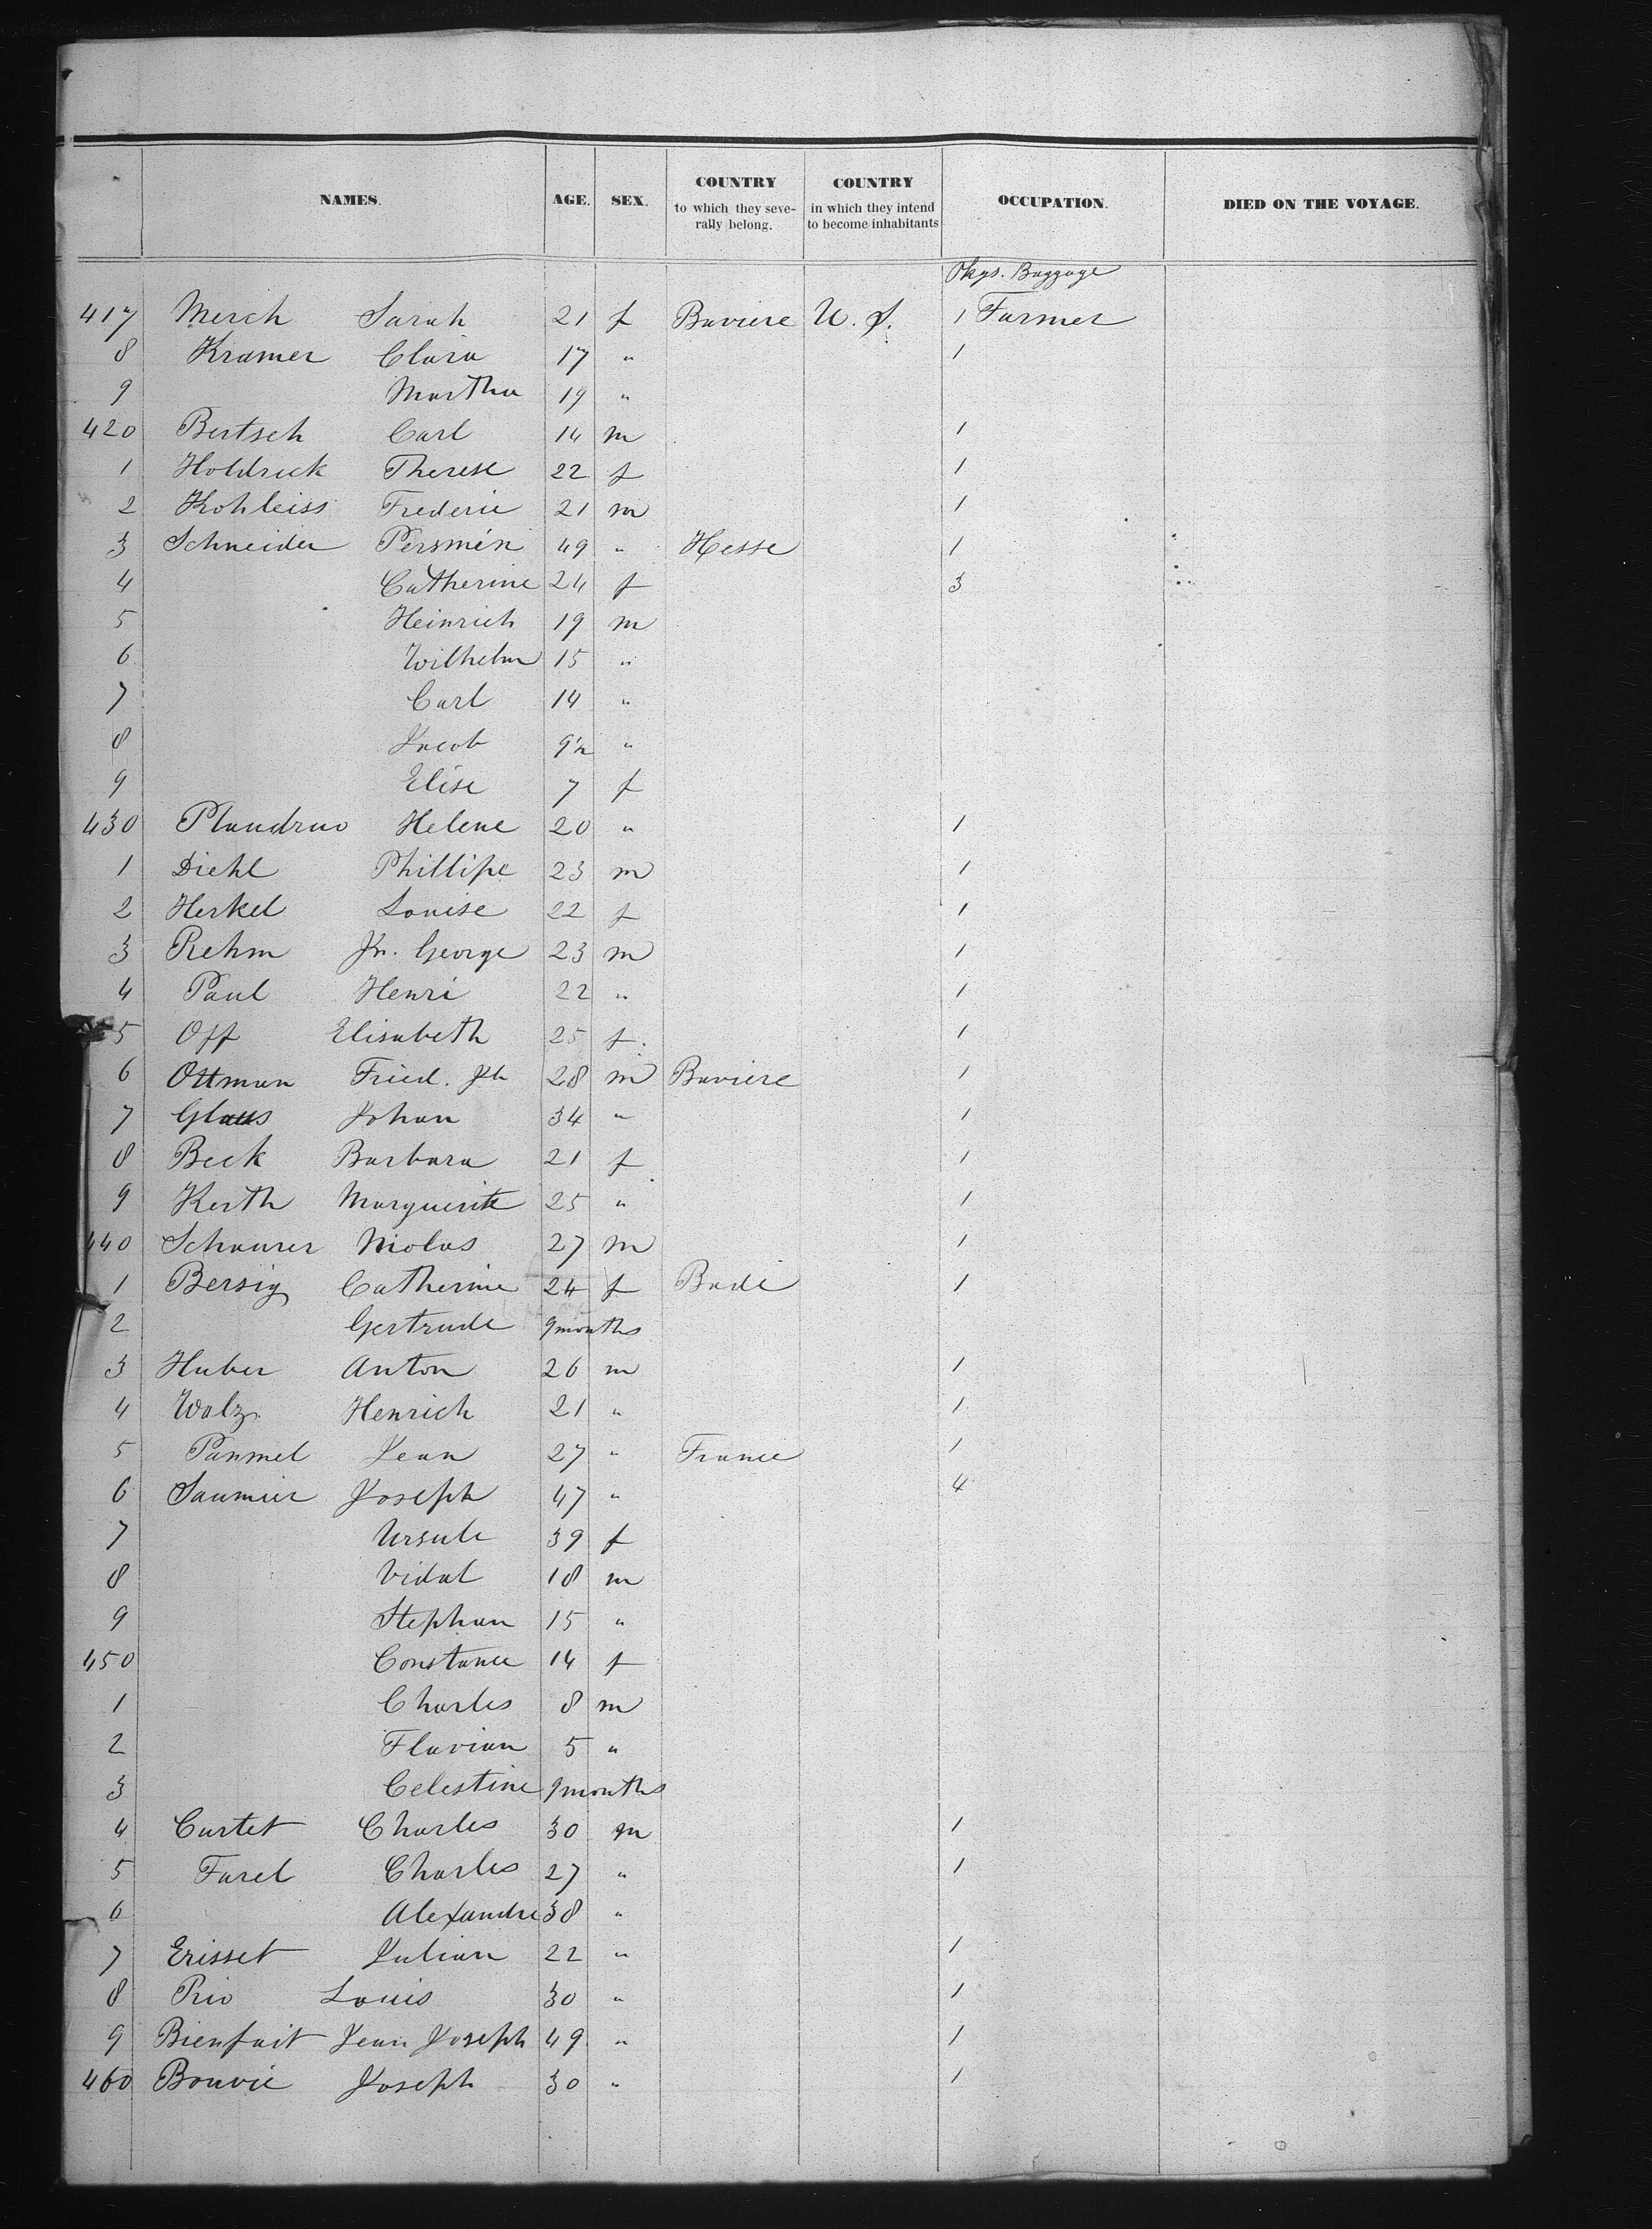 NAMES. AGE. SEX. COUNTRY to which they severally belong. COUNTRY in which they intend to become inhabitants OCCUPATION. DIED ON THE VOYAGE.
Pkgs. Baggage
417 Merch Sarah 21 f Baviere U. S. 1 Farmer
8 Kramer Clara 17 " 1
9 Martha 19 "
420 Bertsch Carl 14 m 1
1 Holdrick Therese 22 f 1
2 Kohleiss Frederic 21 m 1
3 Schneider Persmén 49 " Hesse 1
4 Catherine 24 f 3
5 Heinrich 19 m
6 Wilhelm 15 "
7 Carl 14 "
8 Jacob 9½ "
9 Elise 7 f
430 Helene 20 " 1
1 Diehl Phillipe 23 m 1
2 Herkel Louise 22 f 1
3 Rehm Jn. George 23 m 1
4 Paul Henri 22 " 1
5 Off Elisabeth 25 f. 1
6 Ottman Fried. Jh 28 m Baviere 1
7 Glaus Johan 34 " 1
8 Beck Barbara 21 f 1
9 Kerth Marguerite 25 " 1
440 Schaurer Niolas 27 m 1
1 Bersig Catherine 24 f Bade 1
2 Gertrude 9 months
3 Huber Anton 26 m 1
4 Walz Henrich 21 " 1
5 Panmel Jean 27 " France 1
6 Saumier Joseph 47 " 4
7 Ursule 39 f
8 Vidal 18 m
9 Stephan 15 "
450 Constance 14 f
1 Charles 8 m
2 Flavian 5 "
3 Celestine 9 months
4 Curtet Charles 30 m 1
5 Farel Charles 27 " 1
6 Alexandre 38 "
7 Erisset Julian 22 " 1
8 Prio Louis 30 " 1
9 Bienfait Jean Joseph 49 " 1
460 Bouvie Joseph 30 " 1